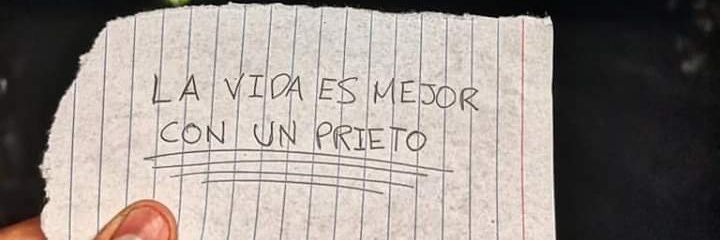 LA VIDA ES MEJOR
CON UN PRIETO